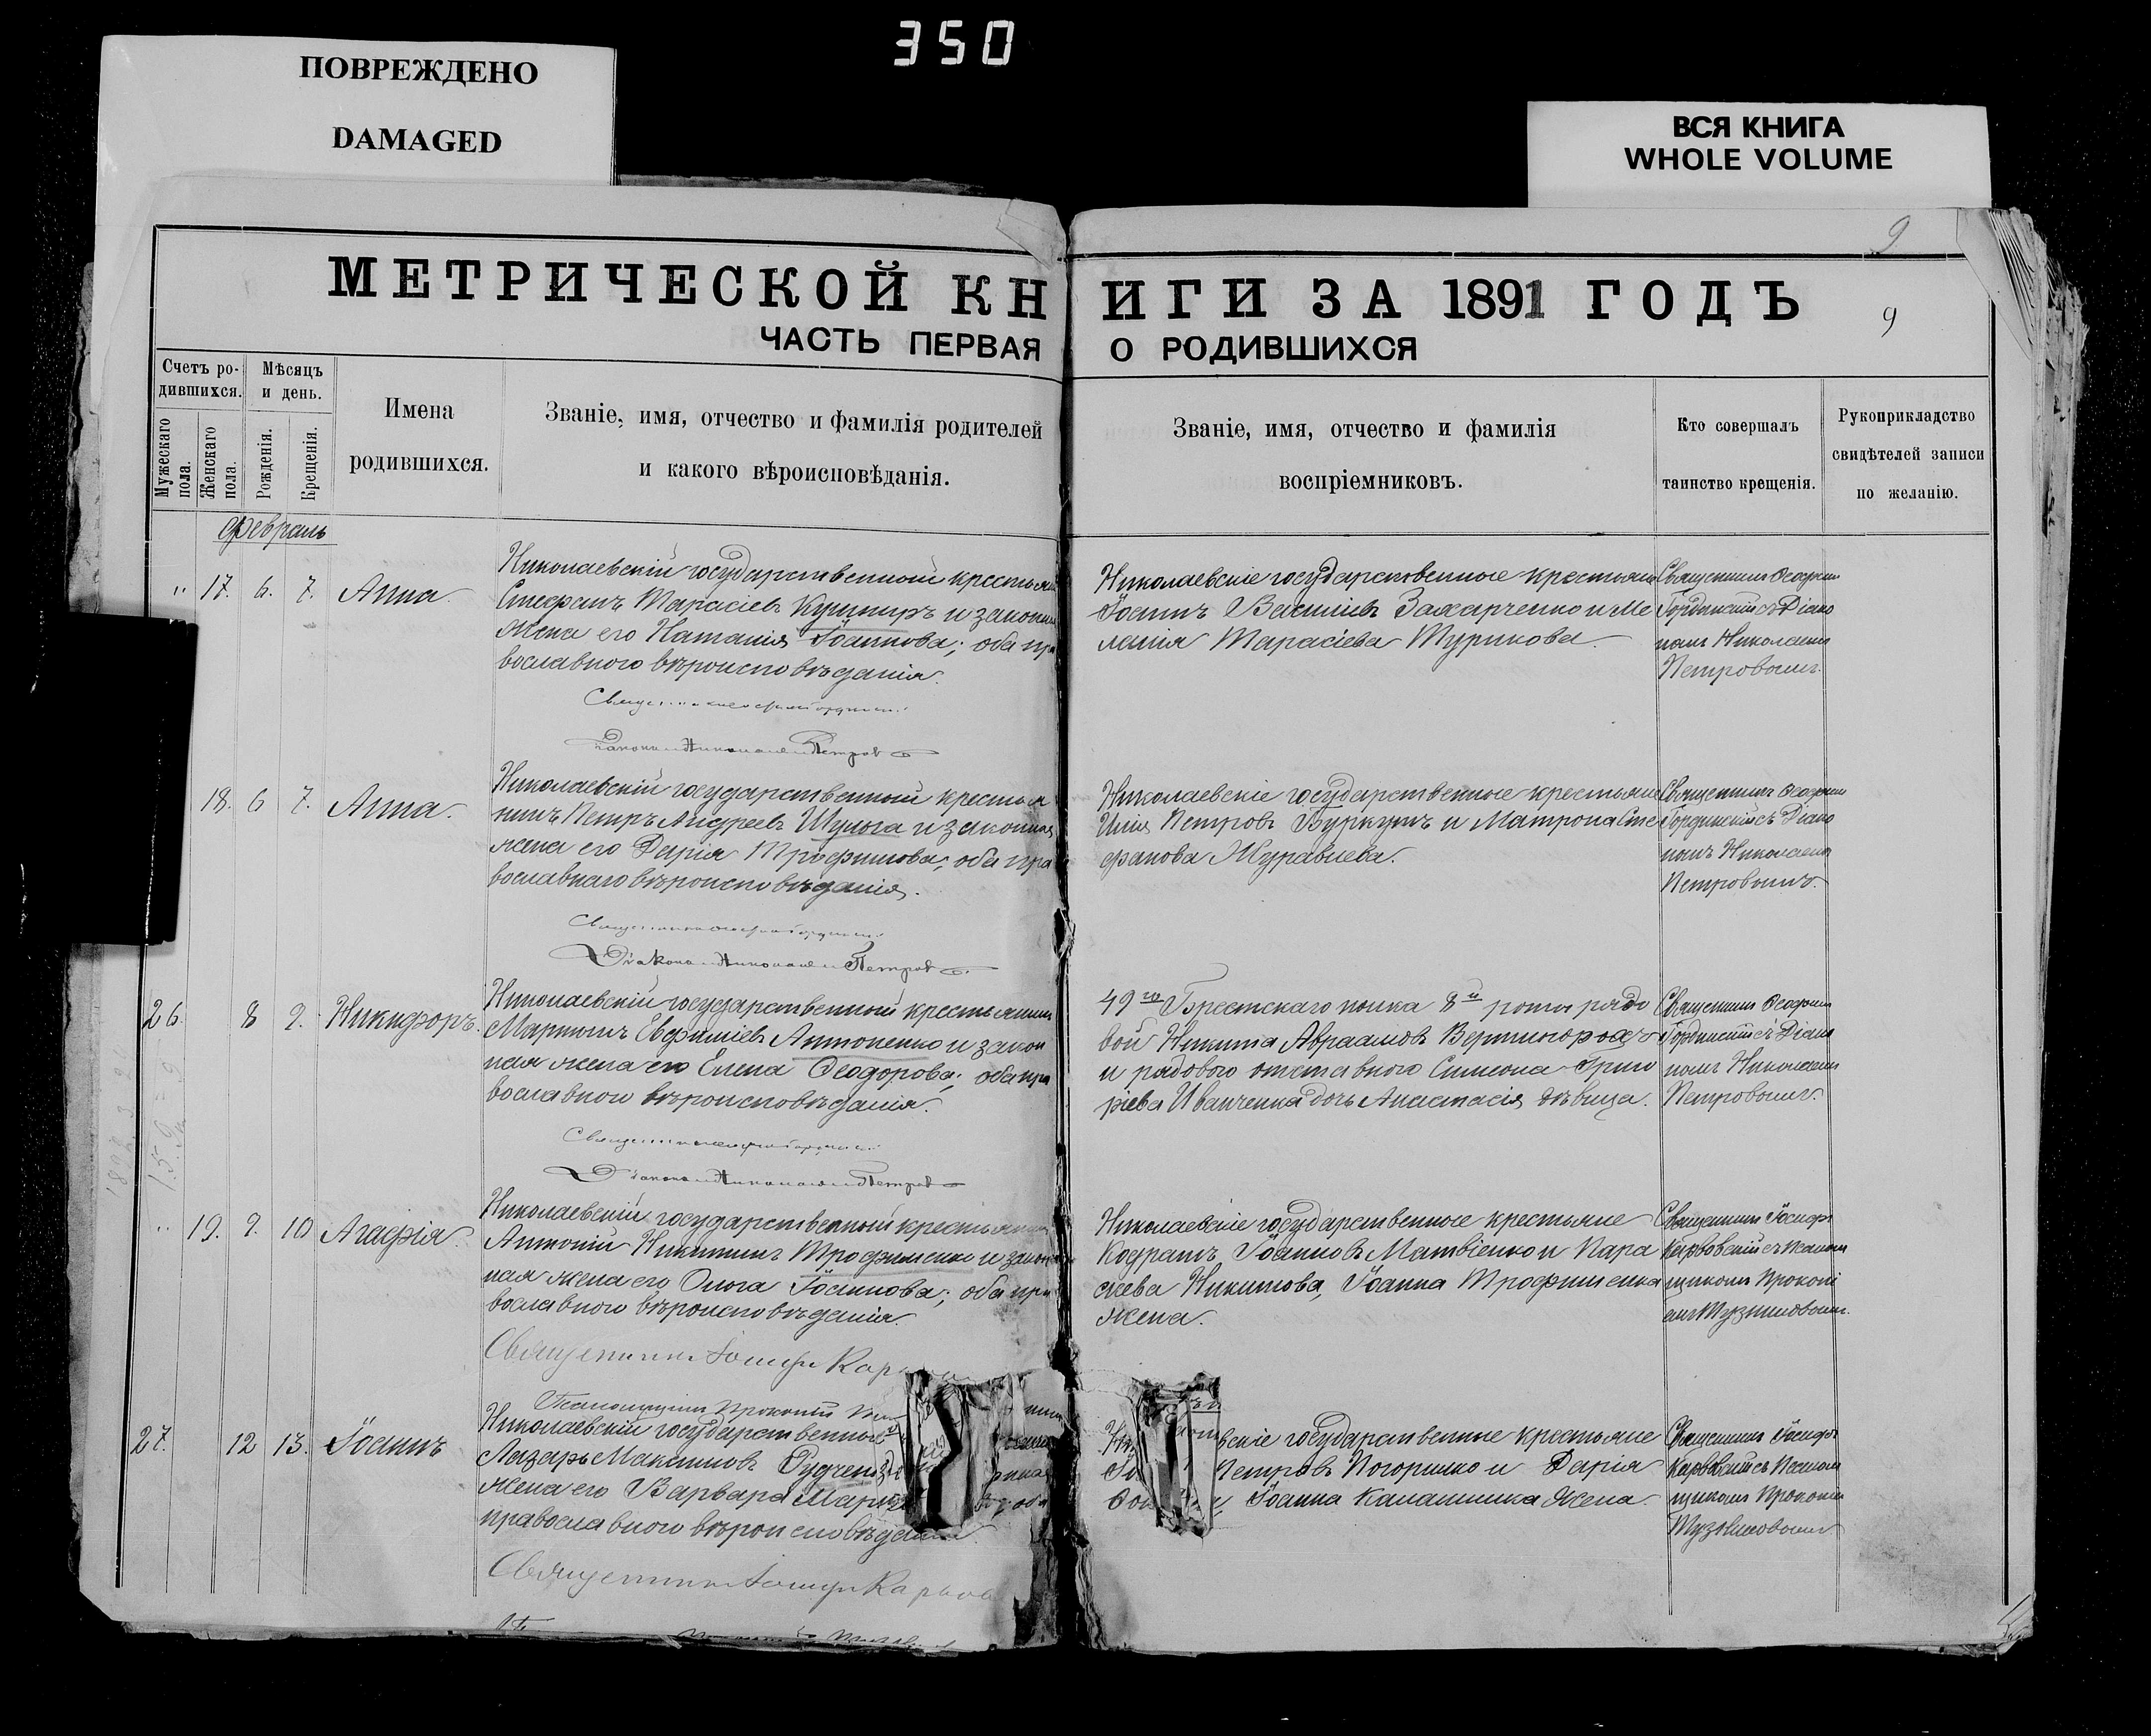 350
ПОВРЕЖДЕНО
DAMAGED
ВСЯ КНИГА
WHOLE VOLUME
9
МЕТРИЧЕСКОЙ КНИГИ ЗА 1891 ГОДЪ
9
ЧАСТЬ ПЕРВАЯ О РОДИВШИХСЯ
Счетъ ро-
дившихся.
Мужескаго пола.
Женскаго пола.
Мѣсяцъ
и день.
Рожденія.
Крещенія.
Имена
родившихся.
Званіе, имя, отчество и фамилія родителей
и какого вѣроисповѣданія.
Званіе, имя, отчество и фамилія
воспріемниковъ.
Кто совершалъ
таинство крещенія.
Рукоприкладство
свидѣтелей записи
по желанію.
февраль
" 17. 6. 7. Анна.
Николаевскій государственный крестьян
Стефанъ Тарасіевъ Кушниръ и законн
жена его Наталія Іоаннова; оба пра
вославного вѣроисповѣданія.
Николаевскіе государственные крестьяне
Іоаннъ Васильевъ Захарченко и Ме
ланія Тарасіева Турикова.
Священникъ Ѳеофил
съ Діако
номъ Николаемъ
Петровымъ.
Діаконъ Николай Петровъ
18. 6 7. Анна.
Николаевскій государственный крестья
нинъ Петръ Андреевъ Шулога и законная
жена его Дарія Трофимова; оба пра
вославнаго вѣроисповѣданія.
Николаевскіе государственные крестьяне
Илія Петровъ Буркутъ и Матрона Сте
фанова Журавлева.
Священникъ Ѳеофил
съ Діако
номъ Николаемъ
Петровымъ.
Діаконъ Николай Петровъ
26. 8 9. Никифоръ.
Николаевскій государственный крестьянинъ
Мартинъ Евфиміевъ Антоненко и закон
ная жена его Елена Ѳеодорова; оба пра
вославного вѣроисповѣданія.
49го Брестскаго полка 8й роты рядо
вой Никита Авраамовъ
и рядового отставного Симеона Григо
ріева Иванченка дочь Анастасія дѣвица.
Священникъ Ѳеофил
съ Діако
номъ Николаемъ
Петровымъ.
Діаконъ Николай Петровъ
" 19. 9. 10 Агафія.
Николаевскій государственный крестьянинъ
Антоній Никитинъ Трофименко и закон
ная жена его Ольга Іоаннова; оба пра
вославного вѣроисповѣданія.
Николаевскіе государственные крестьяне
Кодратъ Іоанновъ Матвіенко и Пара
скева Никитова, Іоанна Трофименка
жена.
Священникъ Іосифъ
Карвовскій съ Псалом
щикомъ Прокопі
емъ
Священникъ Іосифъ Кар
Псаломщикъ Прокопій
27. 12 13. Іоаннъ
Николаевскій государственный
Лазарь Максимовъ Рудченко
жена его Варвара оба
православного вѣроисповѣданія.
вскіе государственные крестьяне
Петровъ Погорилко и Дарія
Іоанна Калашника жена.
Священникъ Іосифъ
Карвовскій съ Псалом
щикомъ Прокопіемъ
Священникъ Іосифъ Карвов